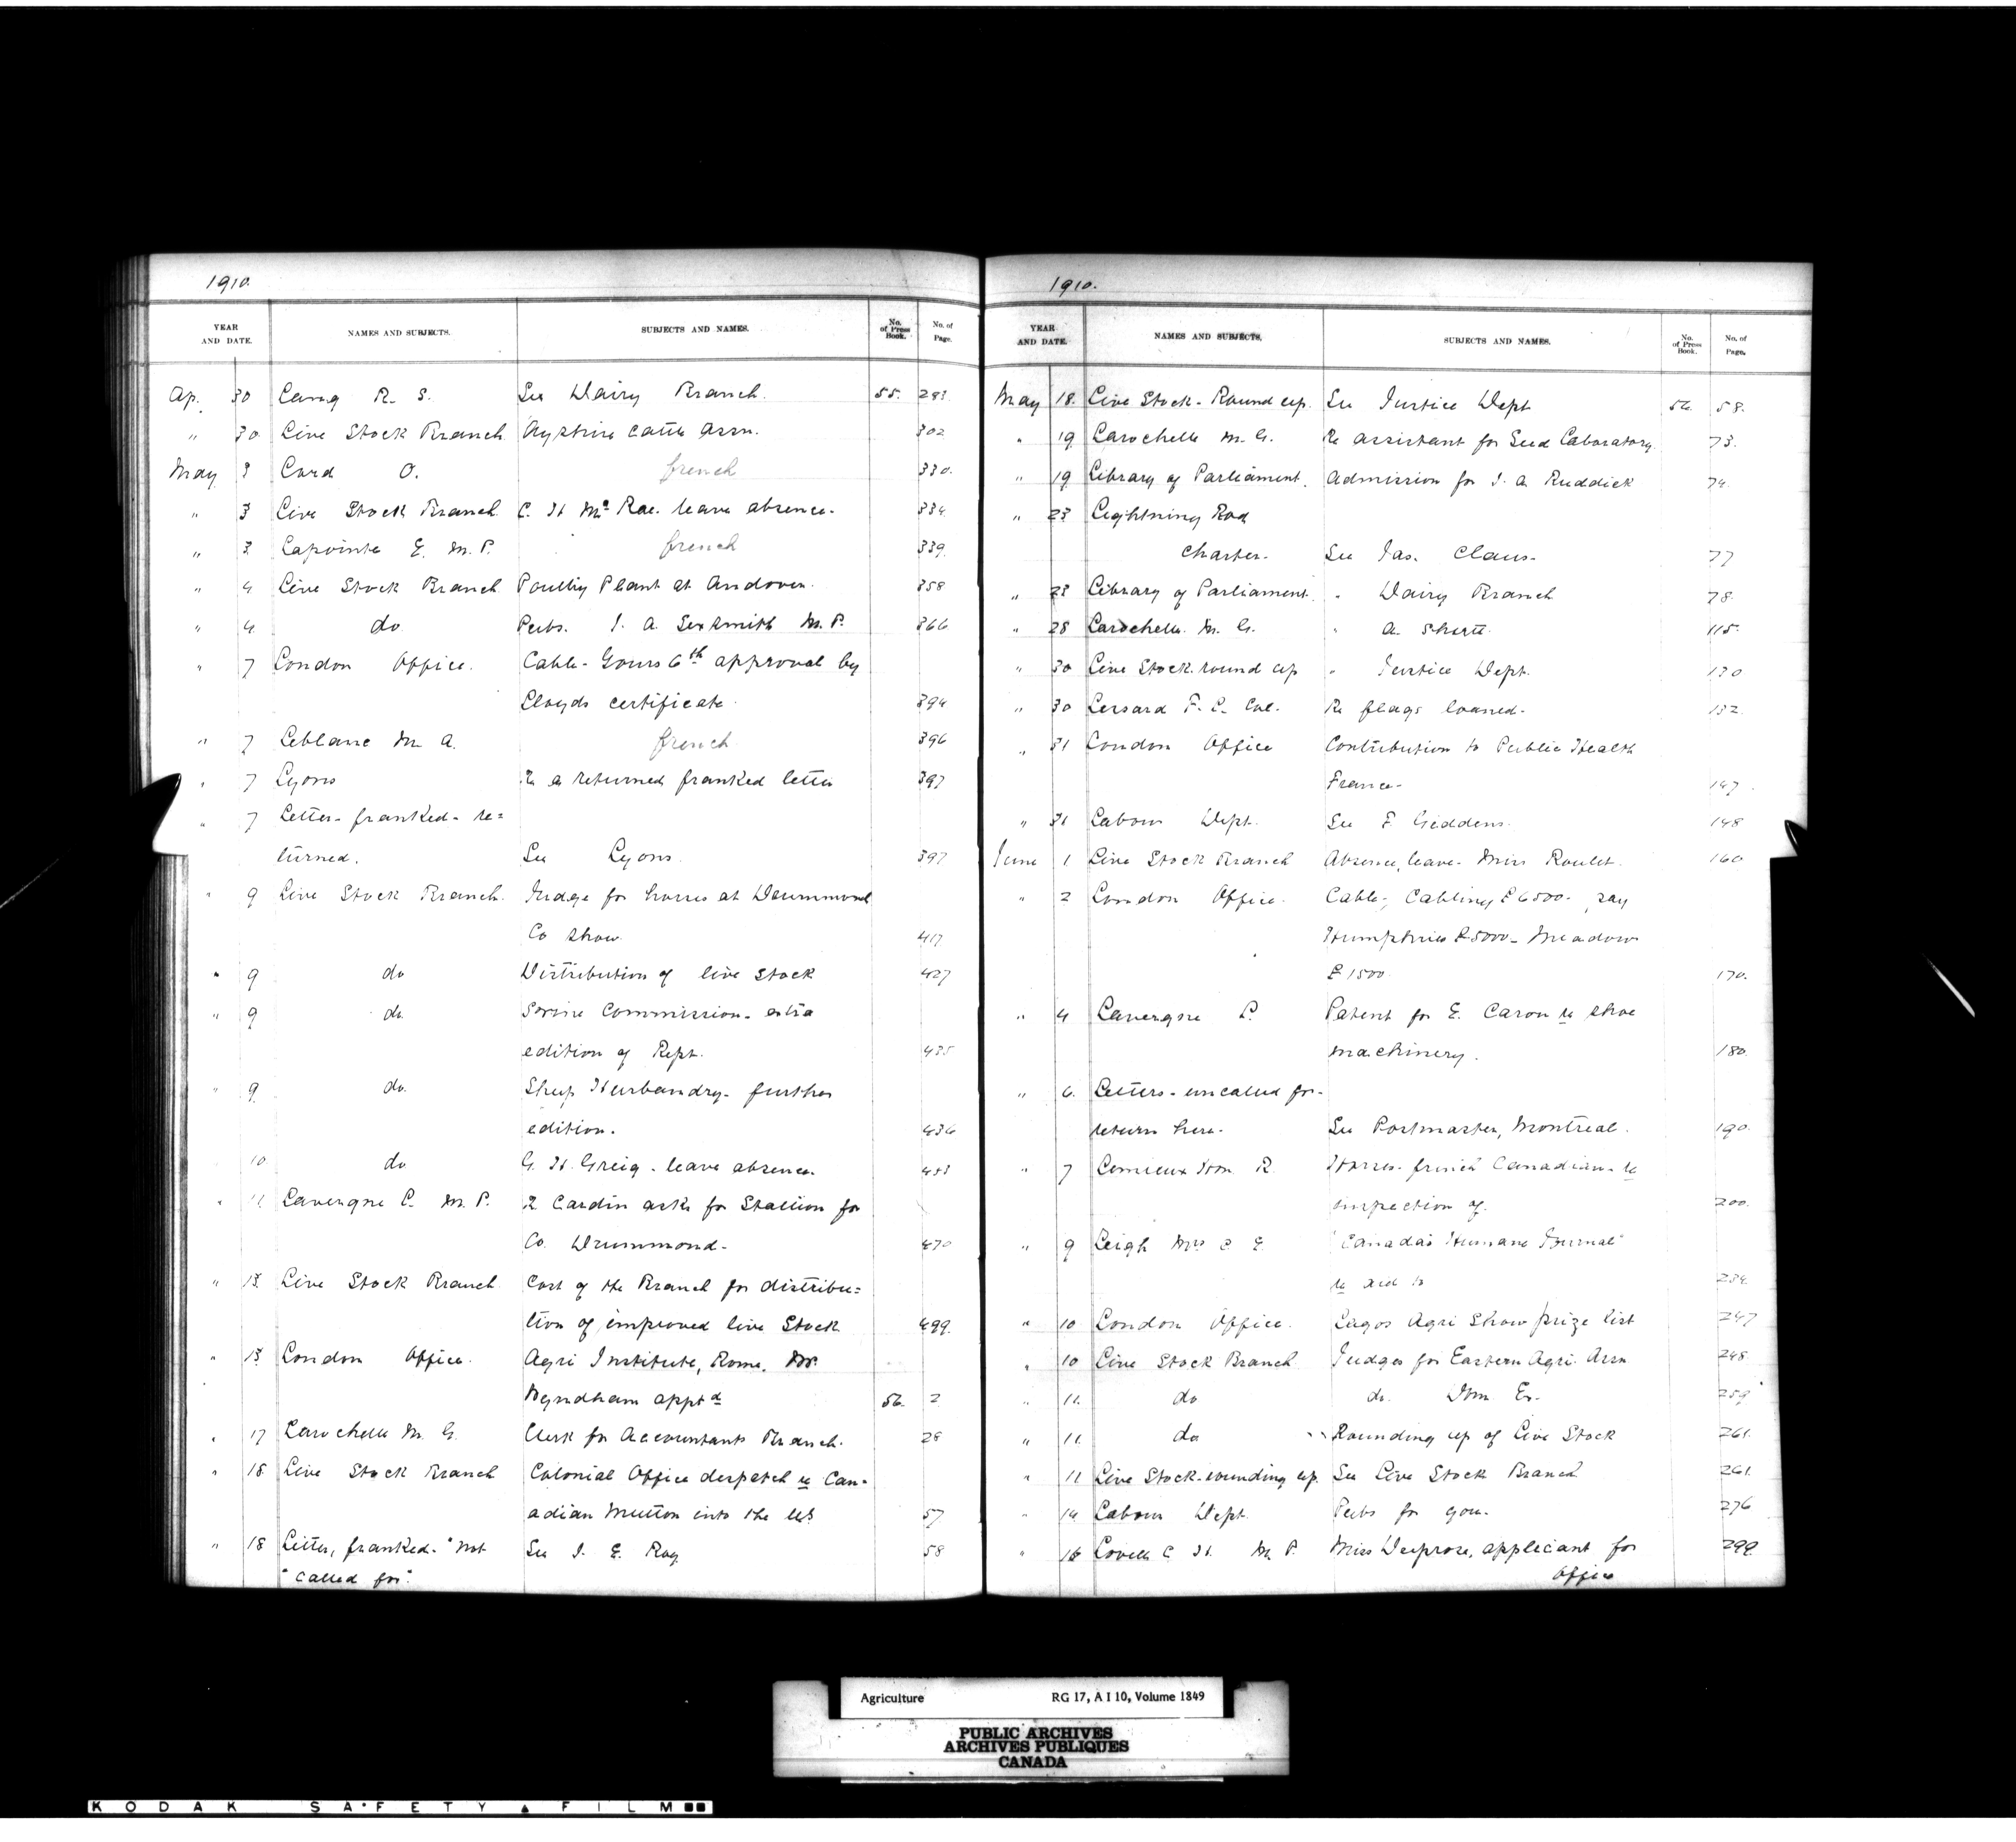 1910.
YEAR AND DATE. NAMES AND SUBJECTS. SUBJECTS AND NAMES. No. of Press Book. No. of Page.
Ap. 30 Lang R. S. See Dairy Branch. 55. 283.
" 30 Live Stock Branch Ayrshire Cattle Assn. 302
May 3 Lord O. french 330.
" 3 Live Stock Branch C. H. McRae. leave absence. 334
" 3 Lapointe E. M.P. french 339.
" 4 Live Stock Branch Poultry Plant at Andover. 358
" 4 do Pubs. J. A. Sexsmith M.P. 366
" 7 London Office. Cable- Yours 6th approval by
Lloyds certificate. 394
" 7 Leblanc M. A. french 396
" 7 Lyons Re a returned franked letter 397
" 7 Letter- franked- re=
turned. See Lyons. 397
" 9 Live Stock Branch. Judge for horses at Drummond
Co Show. 417
" 9 do Distribution of live stock 427
" 9 do. Swine Commission- extra
edition of Rept. 435
" 9. do. Sheep Husbandry- further
edition. 436
10. do G. H. Greig - leave absence. 453
" 11 Lavergne L. M.P. R. Cardin asks for Stallion for
Co. Drummond- 470
" 13. Live Stock Branch Cost of the Branch for distribu=
tion of improved live Stock 499.
" 13 London Office. Agri Institute, Rome. Mr.
Wyndham apptd 56. 2
" 17 Larochelle M. G. Clerk for Accountants Branch. 28
" 18 Live Stock Branch Colonial Office despatch re Can-
adian Mutton into the U.S. 57
" 18 Letter, franked- "Not See J. E. Roy 58
"called for".
1910.
YEAR AND DATE. NAMES AND SUBJECTS. SUBJECTS AND NAMES. No. of Press Book. No. of Page.
May 18. Live Stock- Round up. See Justice Dept 56. 58.
" 19 Larochelle M. G. Re assistant for Seed Laboratory. 73.
" 19 Library of Parliament. Admission for J. A. Ruddick 74.
" 23 Lightning Rod
Charter. See Jas. Claus- 77
" 23 Library of Parliament. " Dairy Branch 78.
" 28 Larochelle. M. G. " A. Shortt. 115.
" 30 Live Stock- round up " Justice Dept. 130
" 30 Lessard F. L. Col. Re flags loaned- 132.
" 31 London Office Contribution to Public Health
France- 147.
" 31 Labour Dept. See F. Giddens. 148
June 1 Live Stock Branch Absence, leave- Miss Roulet. 160
" 2 London Office. Cable; Cabling £6500- pay
Humphries £5000- Meadows
£1500. 170.
" 4 Lavergne L. Patent for E. Caron re shoe
machinery. 180.
" 6. Letters- uncalled for-
return here- See Postmaster, Montreal. 190.
" 7 Lemieux Hon. R. Horses- french Canadian- re
inspection of. 200.
" 9 Leigh Mrs C. E. "Canada's Humane Journal"
re aid to 234.
" 10 London Office. Lagos Agri Show prize list 247
" 10 Live Stock Branch Judges for Eastern Agri. Assn 248
" 11. do do. Dom Ex. 259
" 11. do Rounding up of Live Stock 261.
" 11 Live Stock- rounding up. See Live Stock Branch 261.
" 14. Labour Dept. Pubs for you- 276
" 16 Lovell C. H. M.P. Miss Deeprose, applicant for 299.
Office
Agriculture RG 17, A I 10, Volume 1849
PUBLIC ARCHIVES
ARCHIVES PUBLIQUES
CANADA
KODAK SAFETY FILM